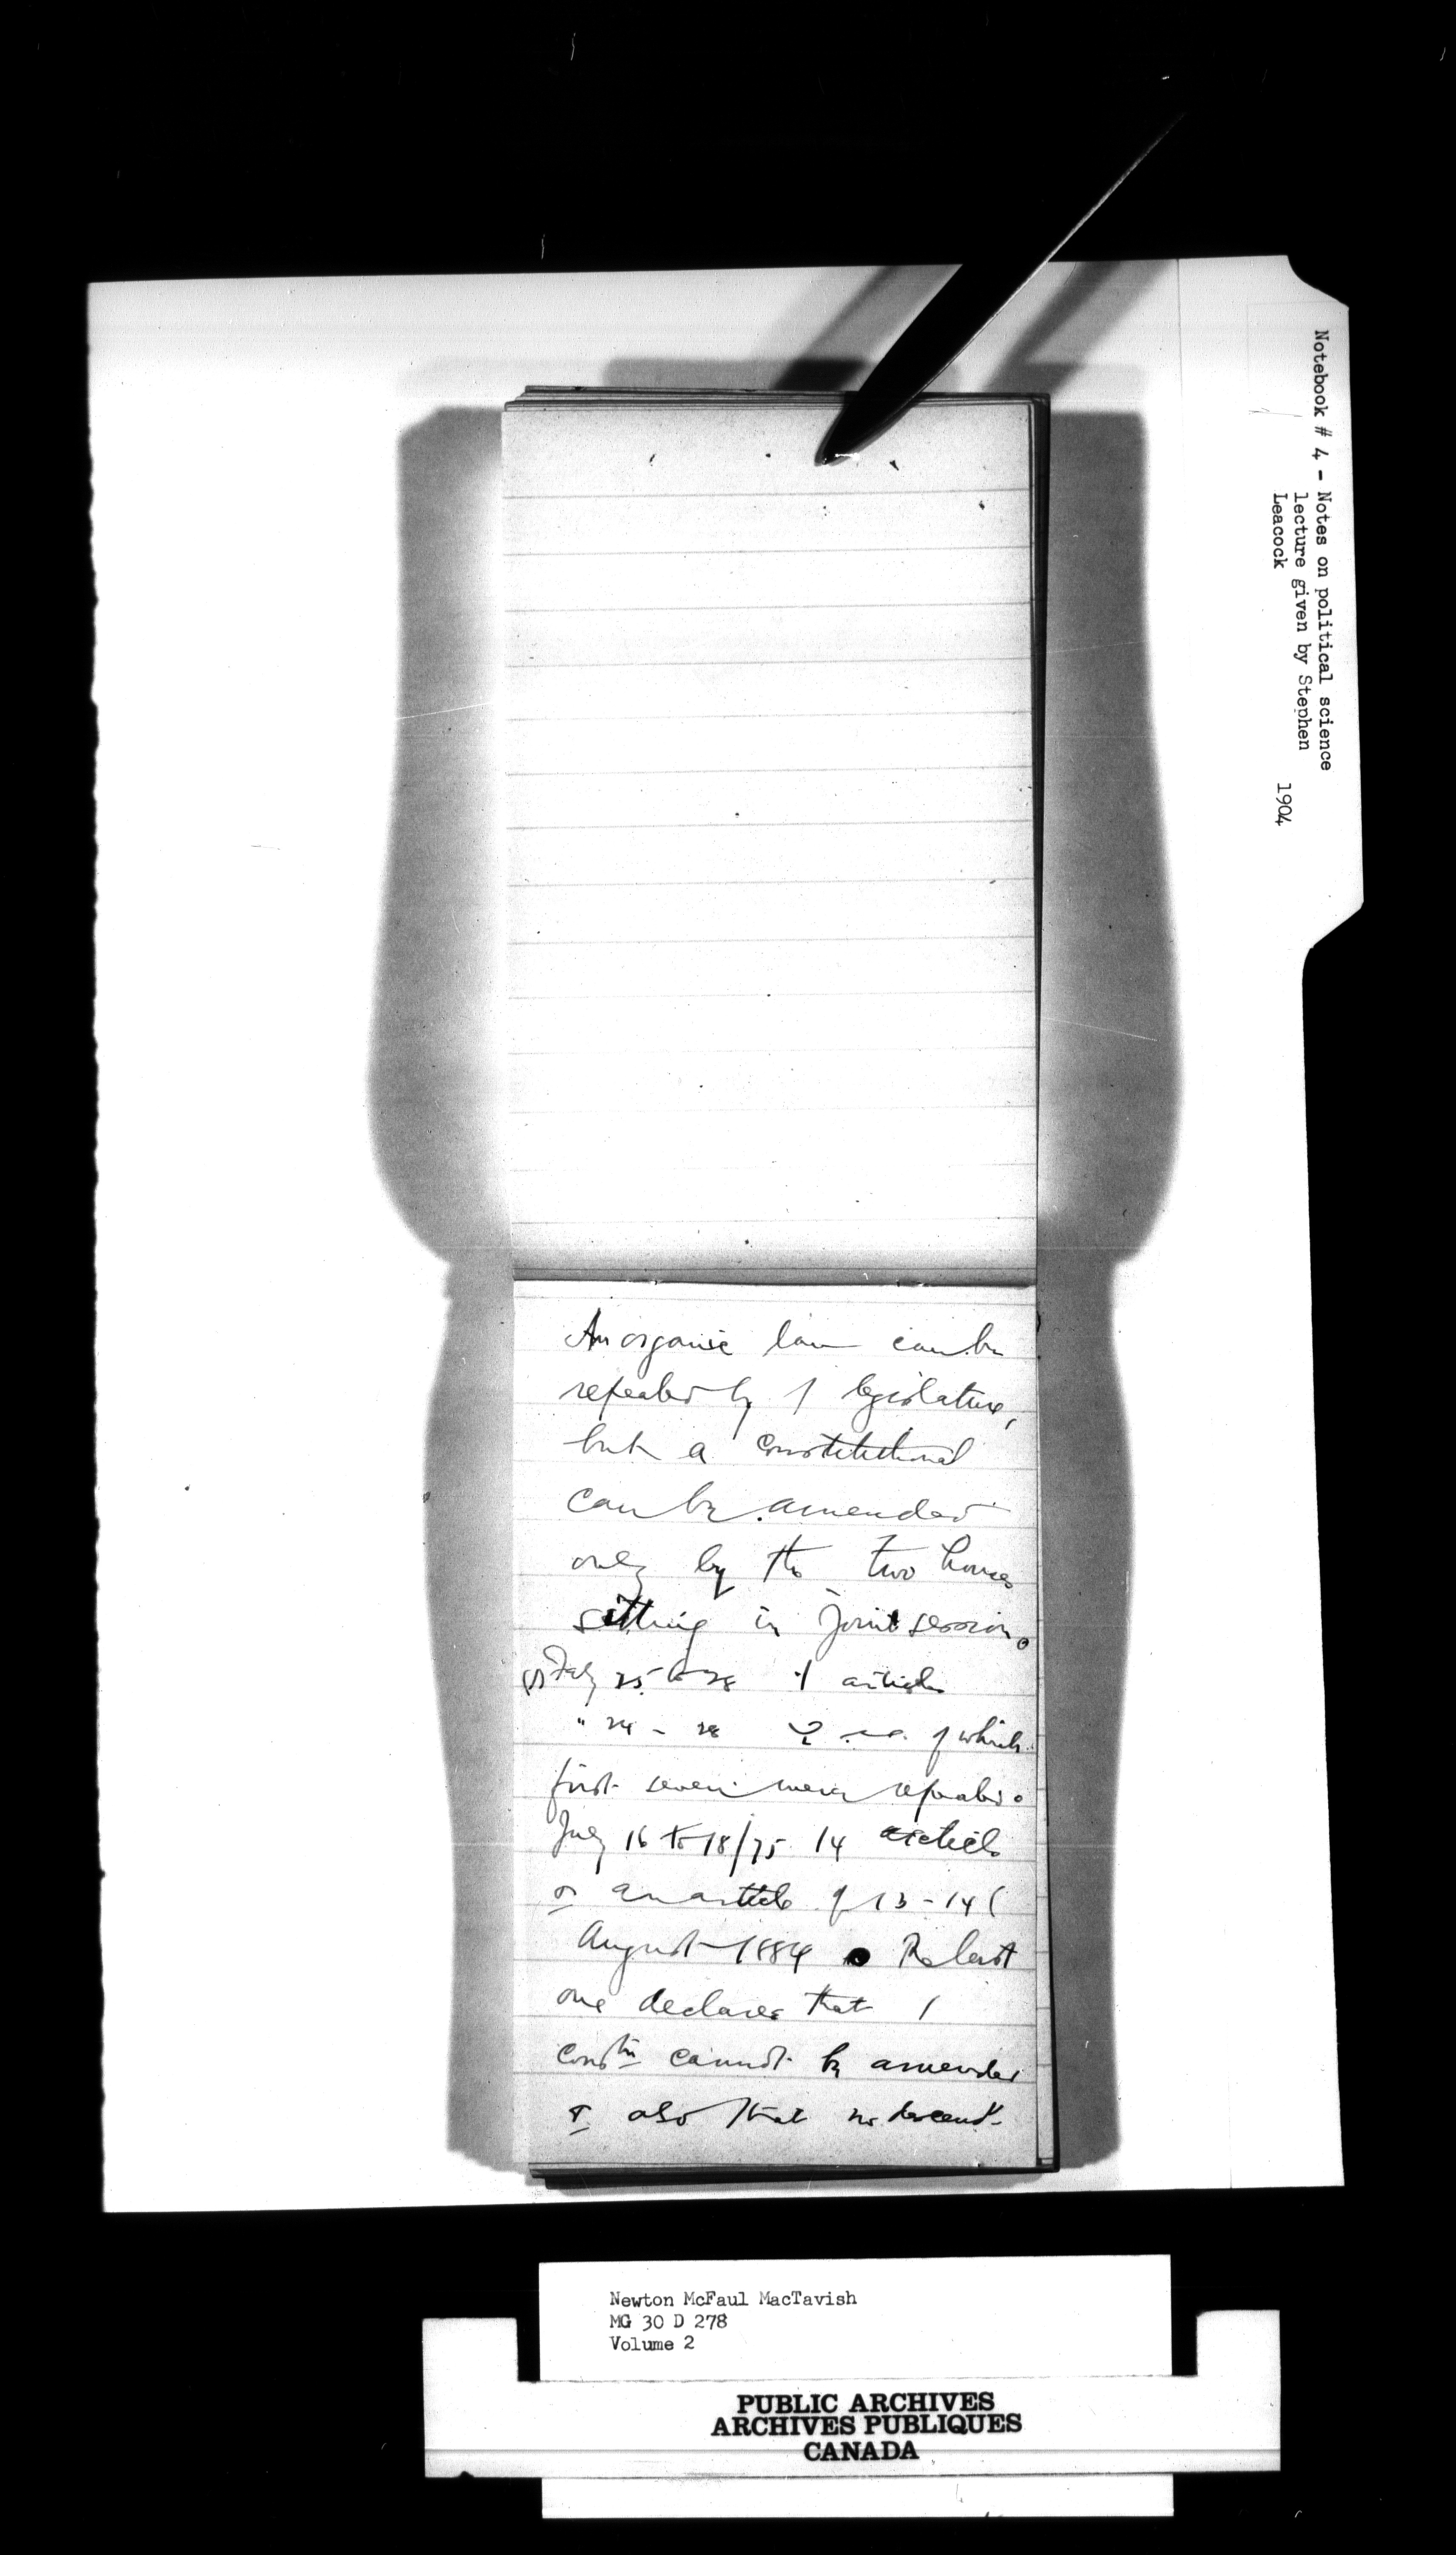 Notebook # 4 - Notes on political science
lecture given by Stephen
Leacock 1904
An organic law can be
repealed by / legislature,
but a constitutional
can be amended
only by the two houses
sitting in joint session.
(1) Feby 25 to 28 / articles
" 24 - 28 of which
first seven were repealed.
July 16 to 18/75 14 articles
or an article of 13-14 (
August 1884 The last
one declares that /
constn cannot be amended
& also that no descend-
Newton McFaul MacTavish
MG 30 D 278
Volume 2
PUBLIC ARCHIVES
ARCHIVES PUBLIQUES
CANADA